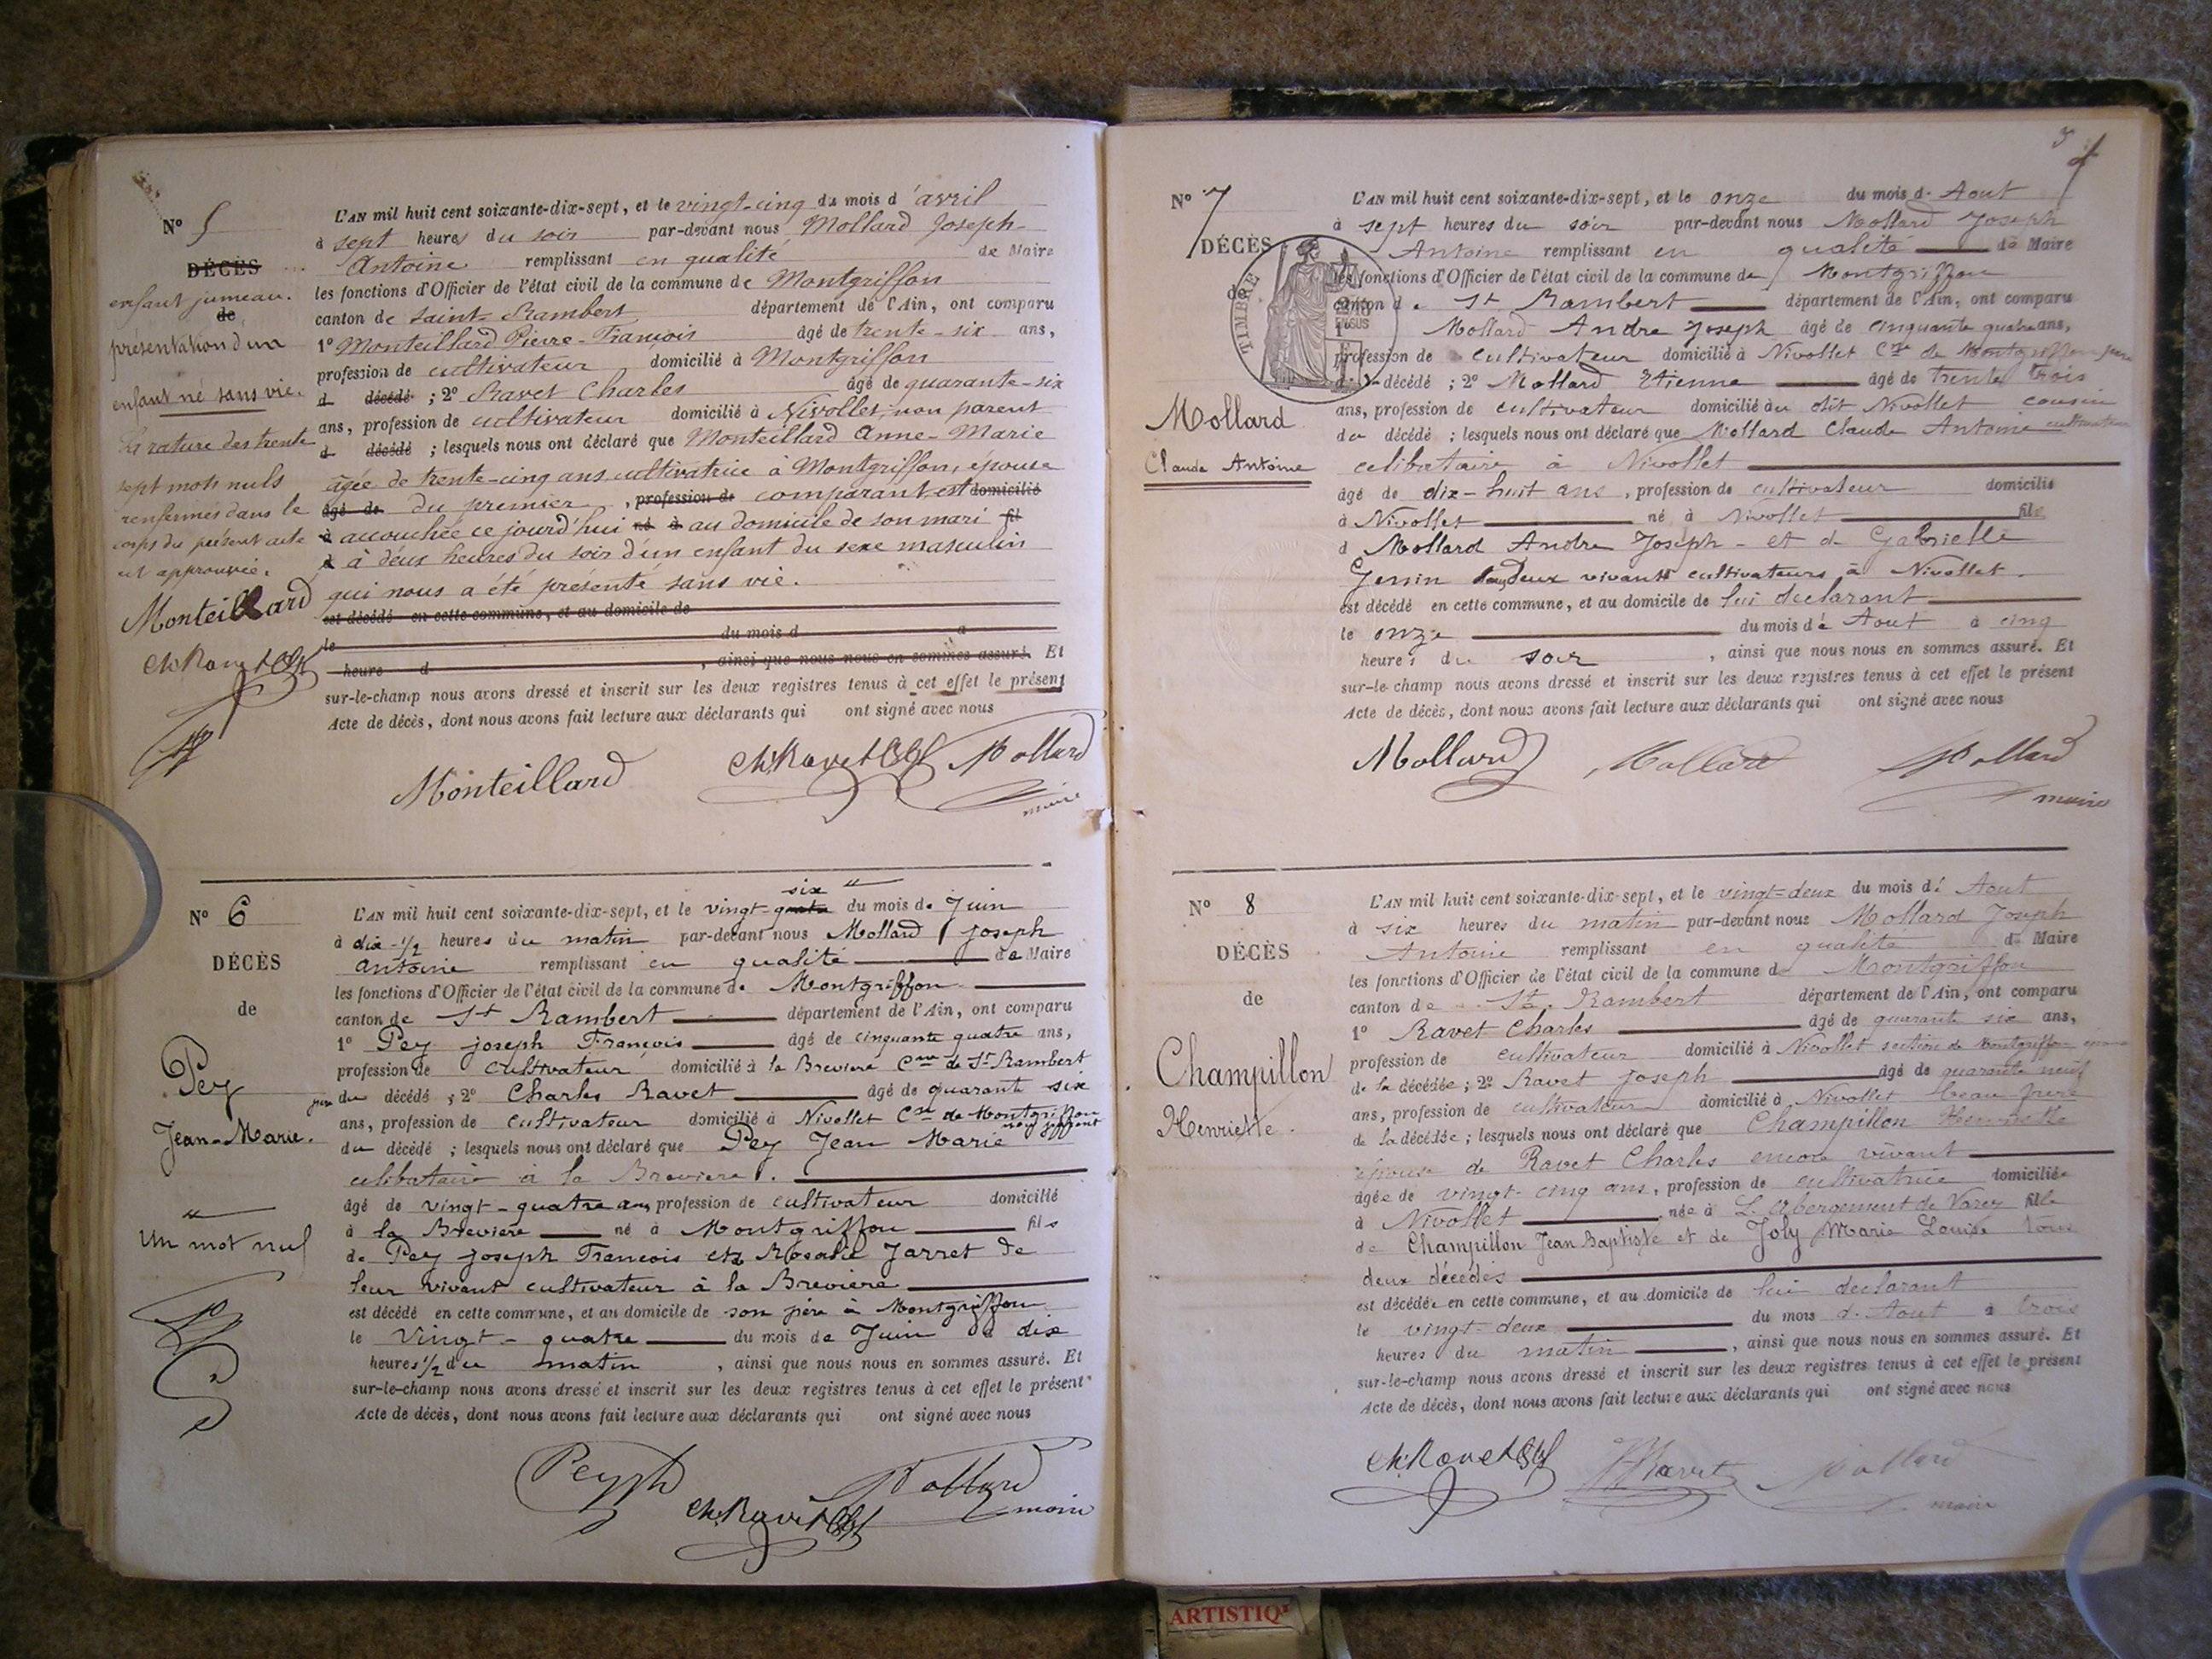 Nº 5
DÉCÈS
enfant jumeau.
de
présentation d'un
enfant né sans vie.
La rature des trente
sept mots nuls
renfermés dans le
corps du présent acte
est approuvée.
Monteillard
Ch. Ravet
L'AN mil huit cent soixante-dix-sept, et le vingt-cinq du mois d'avril
à sept heures du soir par-devant nous Mollard Joseph-
Antoine remplissant en qualité de Maire
les fonctions d'Officier de l'état civil de la commune de Montgriffon
canton de Saint-Rambert, département de l'Ain, ont comparu
1º Monteillard Pierre-François âgé de trente-six ans,
profession de cultivateur domicilié à Montgriffon
d décédé ; 2º Ravet Charles âgé de quarante-six
ans, profession de cultivateur domicilié à Nivollet, non parent
d décédé ; lesquels nous ont déclaré que Monteillard Anne-Marie
âgée de trente-cinq ans, cultivatrice à Montgriffon, épouse
âgé de du premier , profession de comparant est domicilié
à accouchée ce jourd'hui né à au domicile de son mari fil
d à deux heures du soir d'un enfant du sexe masculin
qui nous a été présenté sans vie.
est décédé en cette commune, et au domicile de
le du mois d a
heure d , ainsi que nous nous en sommes assuré. Et
sur-le-champ nous avons dressé et inscrit sur les deux registres tenus à cet effet le présent
Acte de décès, dont nous avons fait lecture aux déclarants qui ont signé avec nous
Monteillard Ch. Ravet Mollard
maire
Nº 6
DÉCÈS
de
Pey
Jean-Marie.
Un mot nul
six
L'AN mil huit cent soixante-dix-sept, et le vingt-quatre du mois de Juin
à dix-1/2 heures du matin par-devant nous Mollard Joseph
Antoine remplissant en qualité de Maire
les fonctions d'Officier de l'état civil de la commune de Montgriffon
canton de St Rambert département de l'Ain, ont comparu
1º Pey Joseph François âgé de cinquante quatre ans,
profession de cultivateur domicilié à la Breviere Cne de St-Rambert
père du décédé ; 2º Charles Ravet âgé de quarante six
ans, profession de cultivateur domicilié à Nivollet Cne de Montgriffon
non parent
du décédé ; lesquels nous ont déclaré que Pey Jean Marie
celibataire à la Breviere.
âgé de vingt-quatre ans, profession de cultivateur domicilié
à la Breviere né à Montgriffon fils
de Pey Joseph François et de Rosalie Jarret de
leur vivant cultivateur à la Breviere
est décédé en cette commune, et au domicile de son père à Montgriffon
le vingt-quatre du mois de Juin à dix
heures 1/2 du matin , ainsi que nous nous en sommes assuré. Et
sur-le-champ nous avons dressé et inscrit sur les deux registres tenus à cet effet le présent
Acte de décès, dont nous avons fait lecture aux déclarants qui ont signé avec nous
Pey Mollard
Ch. Ravet maire
Nº 7
DÉCÈS
de
TIMBRE
Mollard
Claude Antoine
L'AN mil huit cent soixante-dix-sept, et le onze du mois d'Aout
à sept heures du soir par-devant nous Mollard Joseph
Antoine remplissant en qualité de Maire
les fonctions d'Officier de l'état civil de la commune de Montgriffon
canton de St Rambert département de l'Ain, ont comparu
1º Mollard Andre Joseph âgé de cinquante quatre ans,
profession de cultivateur domicilié à Nivollet Cne de Montgriffon père
du décédé ; 2º Mollard Etienne âgé de trente trois
ans, profession de cultivateur domicilié au dit Nivollet cousin
du décédé ; lesquels nous ont déclaré que Mollard Claude Antoine cultivateur
celibataire à Nivollet
âgé de dix-huit ans, profession de cultivateur domicilié
à Nivollet né à Nivollet fils
d Mollard Andre Joseph - et de Gabrielle
Genin tous deux vivants cultivateurs à Nivollet.
est décédé en cette commune, et au domicile de lui declarant
le onze du mois de Aout à cinq
heures du soir , ainsi que nous nous en sommes assuré. Et
sur-le-champ nous avons dressé et inscrit sur les deux registres tenus à cet effet le présent
Acte de décès, dont nous avons fait lecture aux déclarants qui ont signé avec nous
Mollard Mollard Mollard
maire
Nº 8
DÉCÈS
de
Champillon
Henriette.
L'AN mil huit cent soixante-dix-sept, et le vingt-deux du mois d'Aout
à six heures du matin par-devant nous Mollard Joseph
Antoine remplissant en qualité de Maire
les fonctions d'Officier de l'état civil de la commune de Montgriffon
canton de St. Rambert département de l'Ain, ont comparu
1º Ravet Charles âgé de quarante six ans,
profession de cultivateur domicilié à Nivollet section de Montgriffon
de la décédée ; 2º Ravet Joseph âgé de quarante neuf
ans, profession de cultivateur domicilié à Nivollet beau frere
de la décédée ; lesquels nous ont déclaré que Champillon Henriette
épouse de Ravet Charles encore vivant
âgée de vingt-cinq ans, profession de cultivatrice domiciliée
à Nivollet née à L'Abergement de Varey fille
de Champillon Jean Baptiste et de Joly Marie Louise tous
deux décédés
est décédée en cette commune, et au domicile de lui declarant
le vingt-deux du mois d'Aout à trois
heures du matin , ainsi que nous nous en sommes assuré. Et
sur-le-champ nous avons dressé et inscrit sur les deux registres tenus à cet effet le présent
Acte de décès, dont nous avons fait lecture aux déclarants qui ont signé avec nous
Ch. Ravet Ravet Mollard
maire
ARTISTIQ